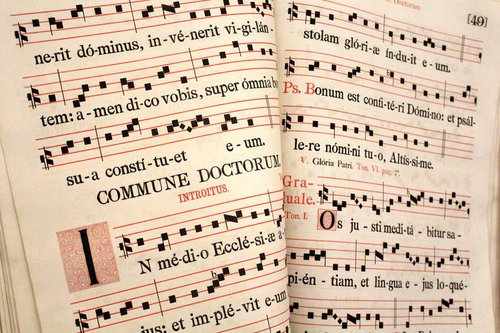 ne-rit dó-minus, in-vé-nerit vi-gi-lán-
tem: a-men di-co vobis, super ómnia bo
su-a consti-tu-et e-um.
COMMUNE DOCTORUM
INTROITUS.
IN mé-di-o Ecclé-si-æ a-
jus: et im-plé-vit e-um
Doctorum.
[49]
stolam gló-ri-æ indu-it e-um.
Ps. Bonum est confi-té-ri Dómi-no: et psál-
le-re nómi-ni tu-o, Altís-si-me.
℣. Glória Patri. Ton. VI, pag. 7*.
Gra-
duale.
Ton. I.
Os ju-sti medi-tá-bitur sa-
pi-én-tiam, et lin-gua e-jus lo-qué-